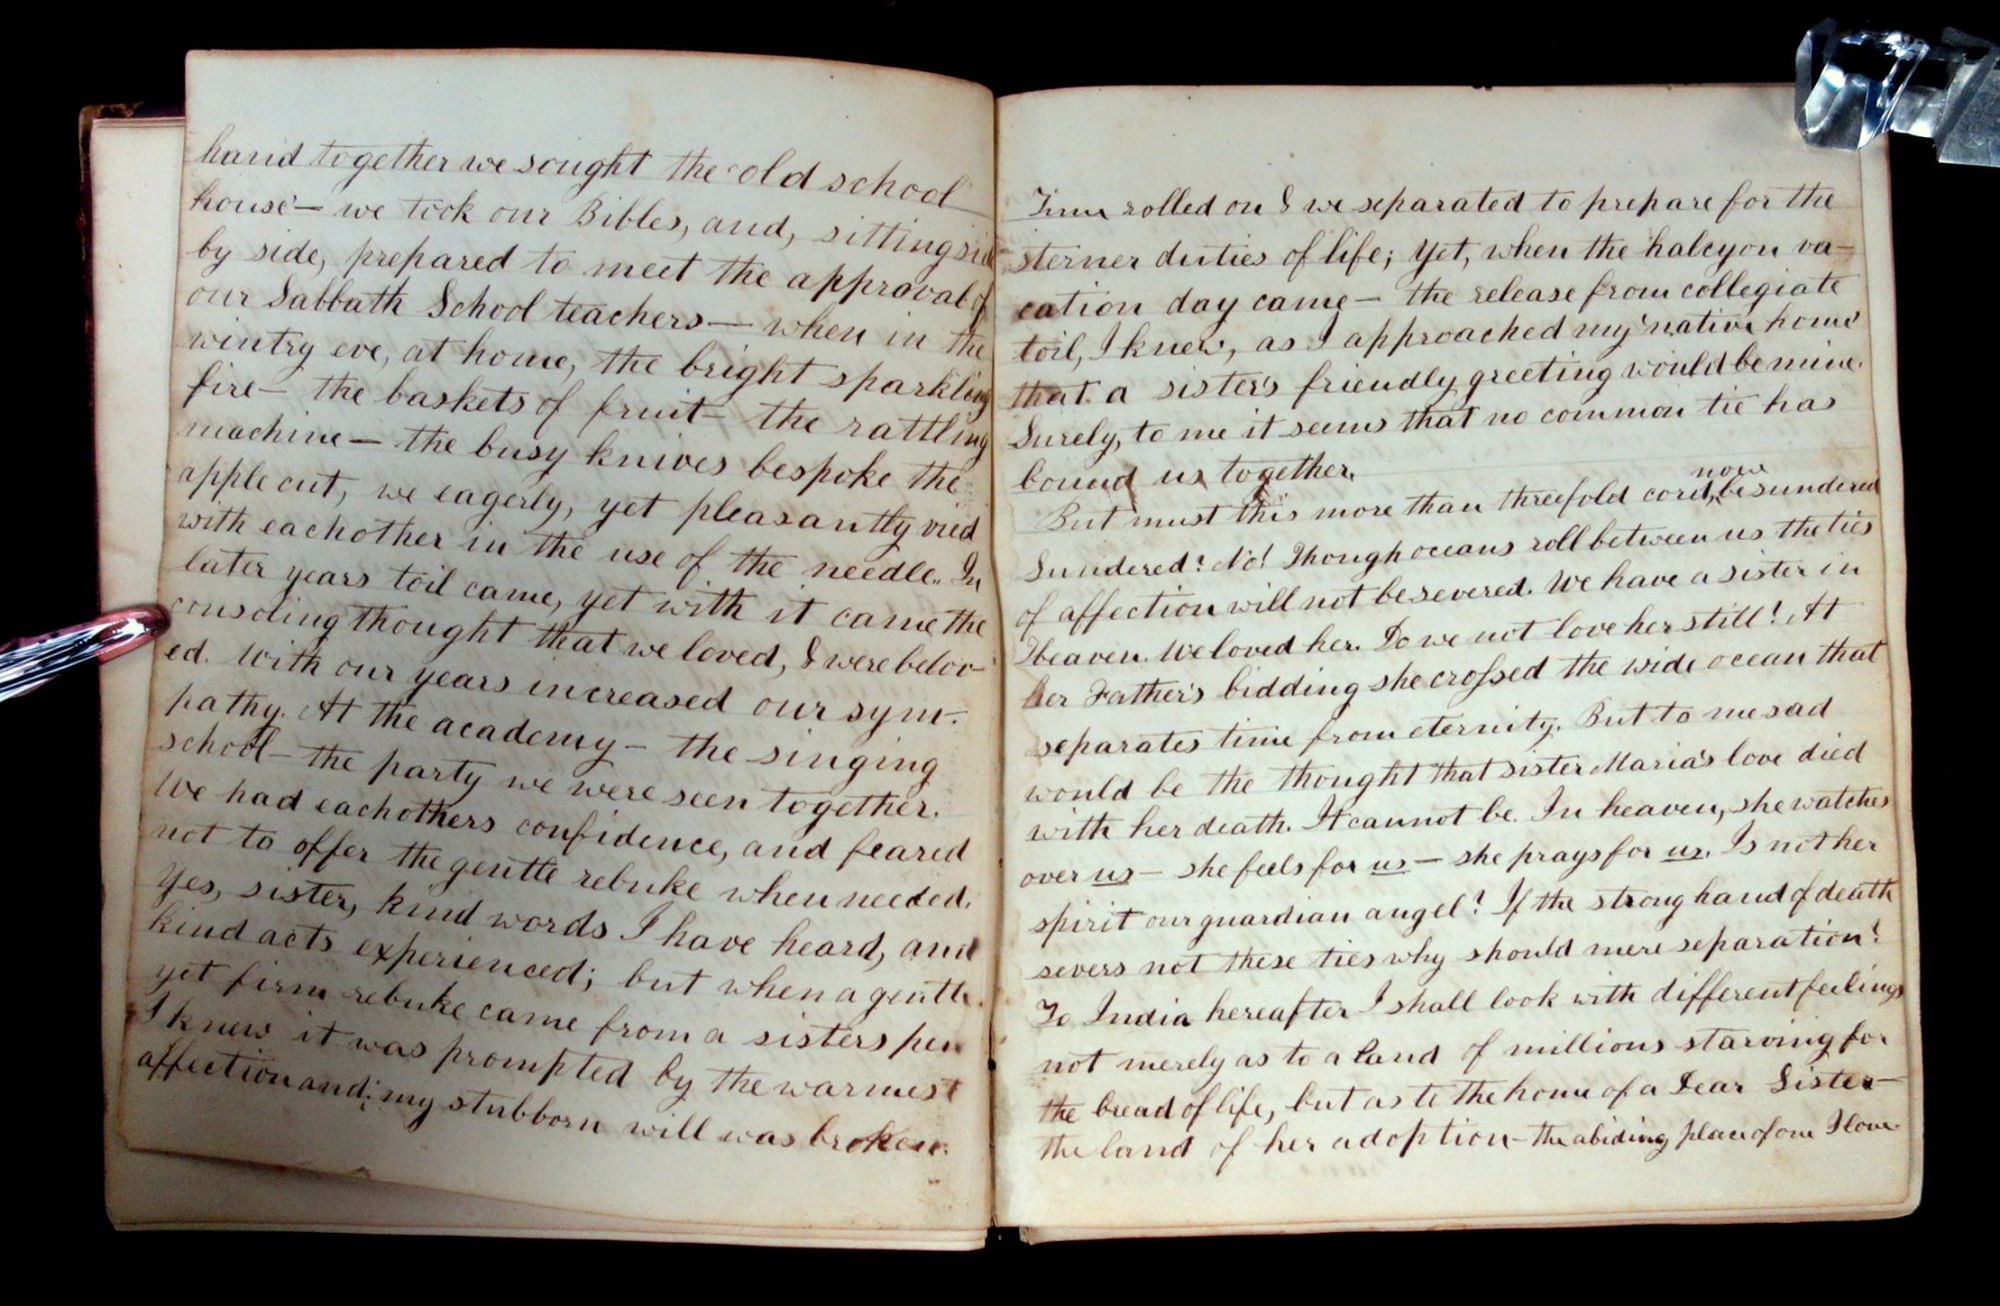 hand together we sought the old school
house — we took our Bibles, and, sitting sid
by side, prepared to meet the approval of
our Sabbath School teachers — when in the
wintry eve, at home, the bright sparkling
fire — the baskets of fruit — the rattling
machine — the busy knives bespoke the
apple cut, we eagerly, yet pleasantly vied
with eachother in the use of the needle. In
later years toil came, yet with it came the
consoling thought that we loved, & were belov-
ed. With our years increased our sym-
pathy. At the academy — the singing
school — the party we were seen together.
We had eachothers confidence, and feared
not to offer the gentle rebuke when needed.
Yes, sister, kind words I have heard, and
kind acts experienced; but when a gentle
yet firm rebuke came from a sisters pen
I knew it was prompted by the warmest
affection and my stubborn will was broken.
Time rolled on & we separated to prepare for the
sterner duties of life; yet, when the halcyon va-
cation day came — the release from collegiate
toil, I knew, as I approached my native home
that a sister's friendly greeting would be mine.
Surely, to me it seems that no common tie has
bound us together.
now
But must this more than threefold cord, be sundered
Sundered? No! Though oceans roll between us the ties
of affection will not be severed. We have a sister in
Heaven. We loved her. Do we not love her still? At
her Father's bidding she crossed the wide ocean that
separates time from eternity. But to me sad
would be the thought that sister Maria's love died
with her death. It cannot be. In heaven, she watches
over us — she feels for us — she prays for us. Is not her
spirit our guardian angel? If the strong hand of death
severs not these ties why should mere separation?
To India hereafter I shall look with different feelings
not merely as to a land of millions starving for
the bread of life, but as to the home of a Dear Sister —
the land of her adoption — the abiding place of one I love.